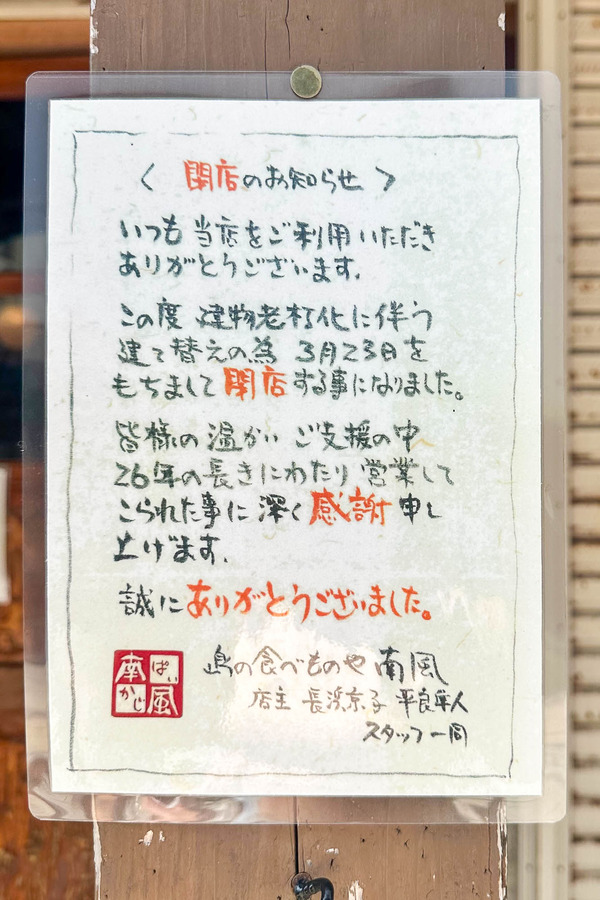 〈 閉店のお知らせ 〉
いつも当店をご利用いただき
ありがとうございます。
この度 建物老朽化に伴う
建て替えの為 3月23日を
もちまして閉店する事になりました。
皆様の温かい ご支援の中
26年の長きにわたり 営業して
こられた事に 深く感謝申し
上げます。
誠にありがとうございました。
島の食べものや 南風
店主 長浜京子 平良隼人
スタッフ一同
ぱい
かじ
南風